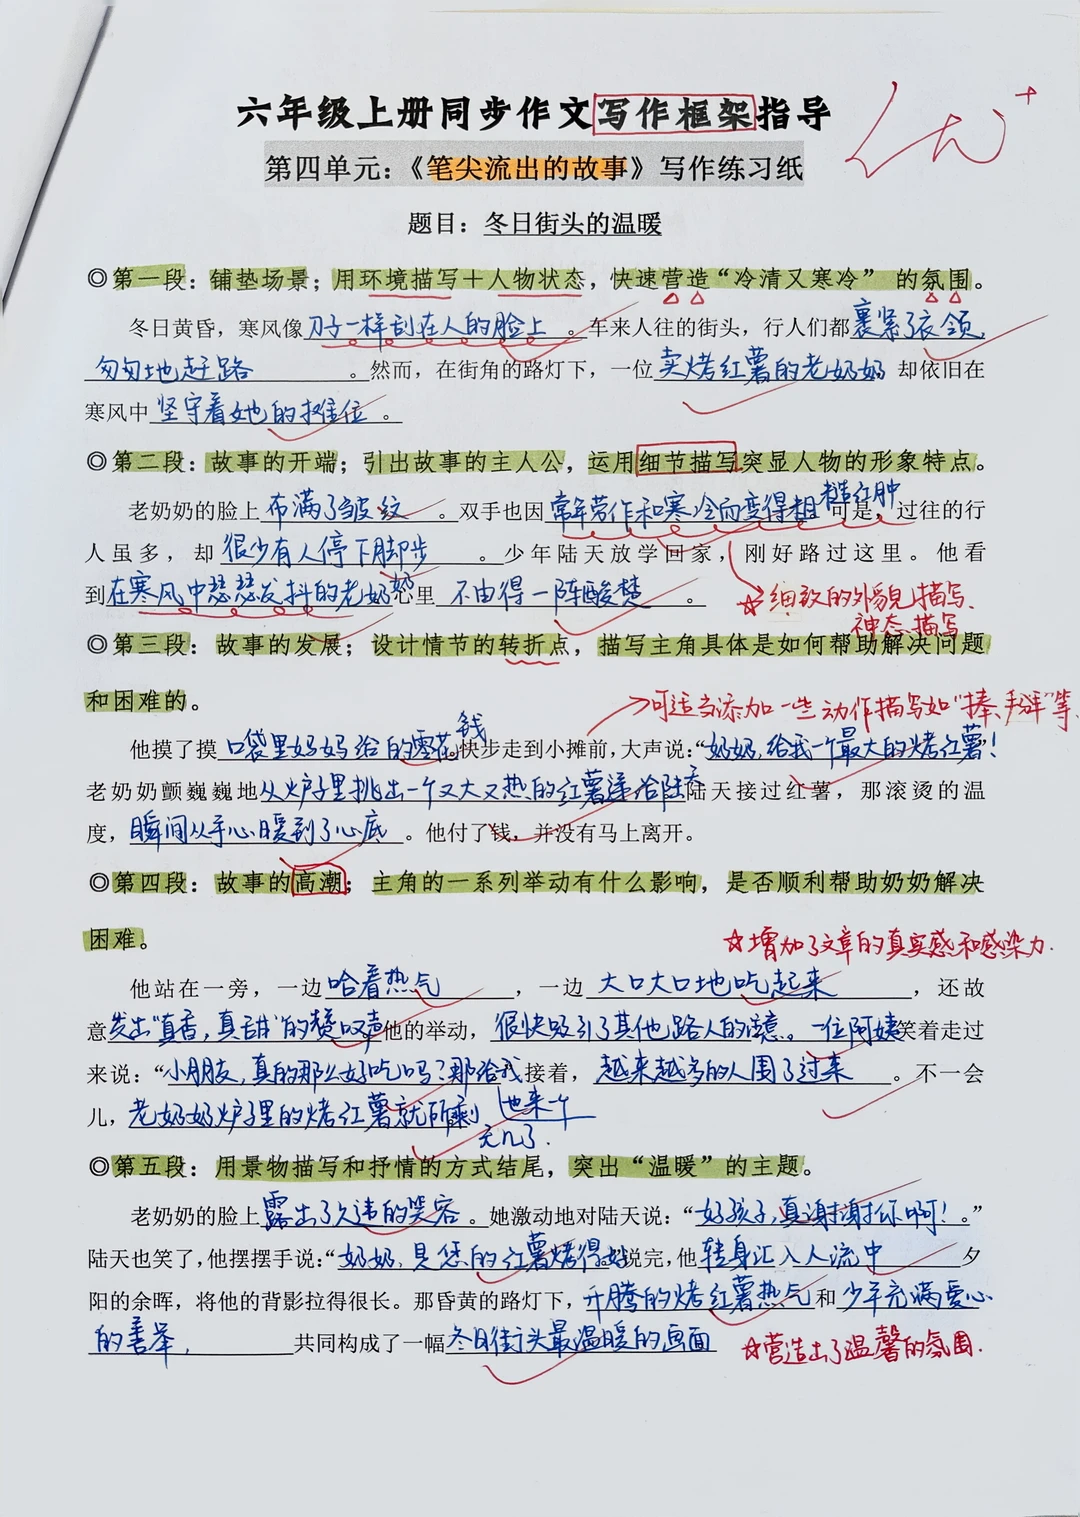 六年级上册同步作文写作框架指导
优+
第四单元：《笔尖流出的故事》写作练习纸
题目：冬日街头的温暖
◎第一段：铺垫场景；用环境描写＋人物状态，快速营造“冷清又寒冷” 的氛围。
冬日黄昏，寒风像刀子一样刮在人的脸上。车来人往的街头，行人们都裹紧了衣领，
匆匆地赶路。然而，在街角的路灯下，一位卖烤红薯的老奶奶 却依旧在
寒风中坚守着她的摊位。
◎第二段：故事的开端；引出故事的主人公，运用细节描写突显人物的形象特点。
老奶奶的脸上布满了皱纹。双手也因常年劳作和寒冷而变得粗糙红肿 可是，过往的行
人虽多，却很少有人停下脚步。少年陆天放学回家，刚好路过这里。他看
到在寒风中瑟瑟发抖的老奶奶心里 不由得一阵酸楚 。
☆细致的外貌描写、
神态描写
◎第三段：故事的发展；设计情节的转折点，描写主角具体是如何帮助解决问题
和困难的。
→可适当添加一些动作描写如“捧、掰”等
他摸了摸口袋里妈妈给的零花钱 快步走到小摊前，大声说：“奶奶，给我一个最大的烤红薯！”
老奶奶颤巍巍地从炉子里挑出一个又大又热的红薯递给陆天 陆天接过红薯，那滚烫的温
度，瞬间从手心暖到了心底。他付了钱，并没有马上离开。
◎第四段：故事的高潮；主角的一系列举动有什么影响，是否顺利帮助奶奶解决
困难。
☆增加了文章的真实感和感染力.
他站在一旁，一边哈着热气，一边 大口大口地吃起来，还故
意发出“真香，真甜”的赞叹声他的举动，很快吸引了其他路人的注意。一位阿姨笑着走过
来说：“小朋友，真的那么好吃吗？那给我也来一个 接着，越来越多的人围了过来。不一会
儿，老奶奶炉子里的烤红薯就所剩无几了.
◎第五段：用景物描写和抒情的方式结尾，突出“温暖”的主题。
老奶奶的脸上露出了久违的笑容。她激动地对陆天说：“好孩子，真谢谢你啊！。”
陆天也笑了，他摆摆手说：“奶奶，是您的红薯烤得好”说完，他转身汇入人流中 夕
阳的余晖，将他的背影拉得很长。那昏黄的路灯下，升腾的烤红薯热气和少年充满爱心
的善举，共同构成了一幅冬日街头最温暖的画面
☆营造出了温馨的氛围.